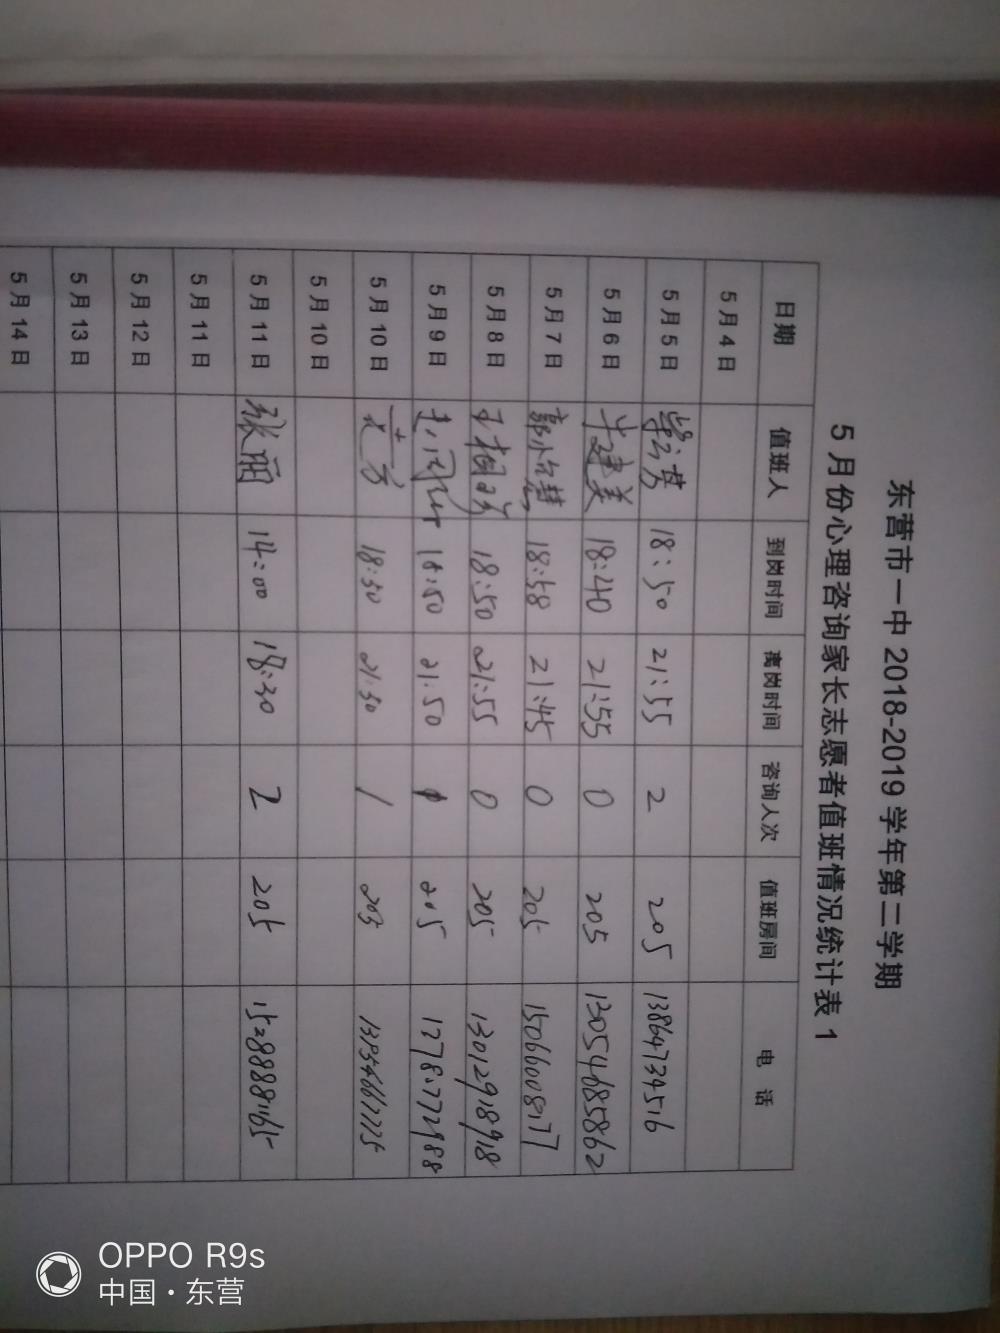 东营市一中 2018-2019 学年第二学期
5 月份心理咨询家长志愿者值班情况统计表 1
日期 值班人 到岗时间 离岗时间 咨询人次 值班房间 电 话
5 月 4 日
5 月 5 日 18:50 21:55 2 205 13864734516
5 月 6 日 毕建美 18:40 21:55 0 205 13054685862
5 月 7 日 18:58 21:45 0 205 15066008177
5 月 8 日 18:50 21:55 0 205 13012918918
5 月 9 日 18:50 21:50 205
5 月 10 日 18:30 21:30 1 205
5 月 10 日
5 月 11 日 张丽 14:00 18:30 2 205
5 月 11 日
5 月 12 日
5 月 13 日
5 月 14 日
OPPO R9s
中国·东营